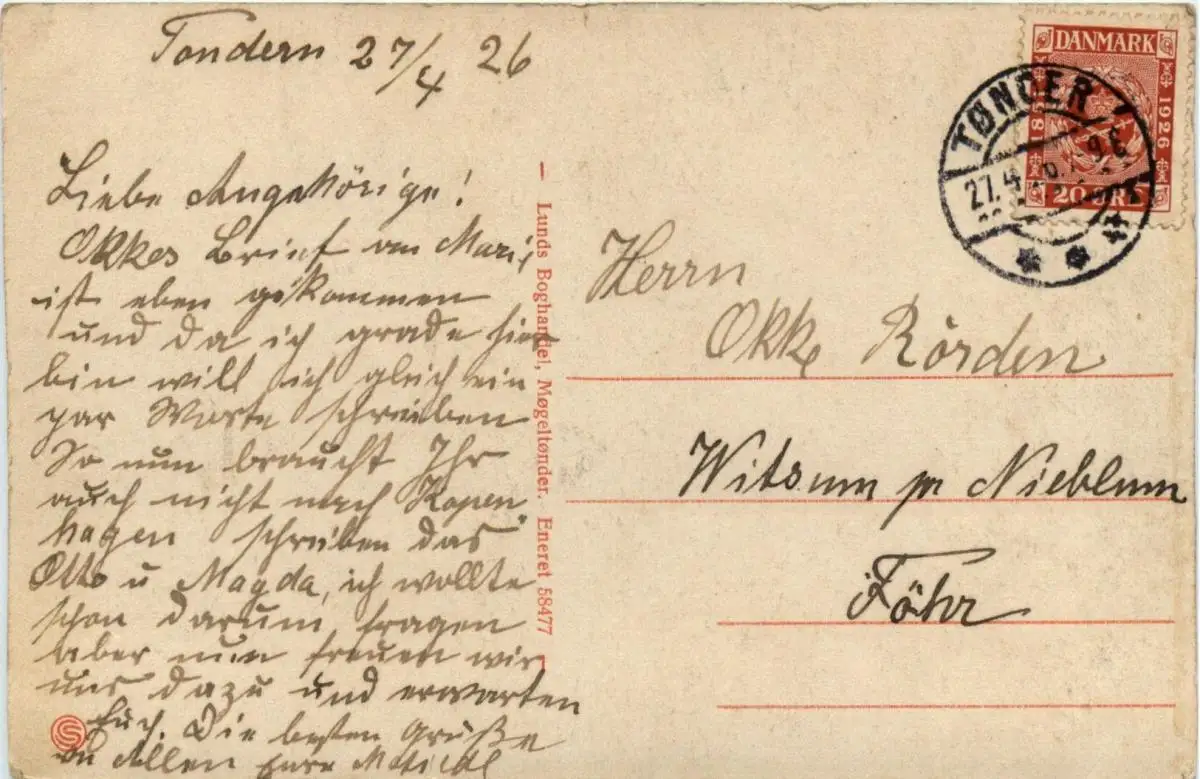 Tondern 27/4 26
Liebe Angehörige!
Okkes Brief an Marie
ist eben gekommen
und da ich grade hier
bin will ich gleich ein
par Worte schreiben
So nun braucht Ihr
auch nicht nach Kopen-
hagen schreiben das
Otto u Magda, ich wollte
schon darum fragen
aber nun freuen wir
uns dazu und erwarten
Euch. Die besten Grüße
an Allen Eure
Lunds Boghandel, Møgeltønder. Eneret 58477
DANMARK
1926
20 ØRE
TØNDER
27.4
Herrn
Okke Rörden
Witsum pr Nieblum
Föhr